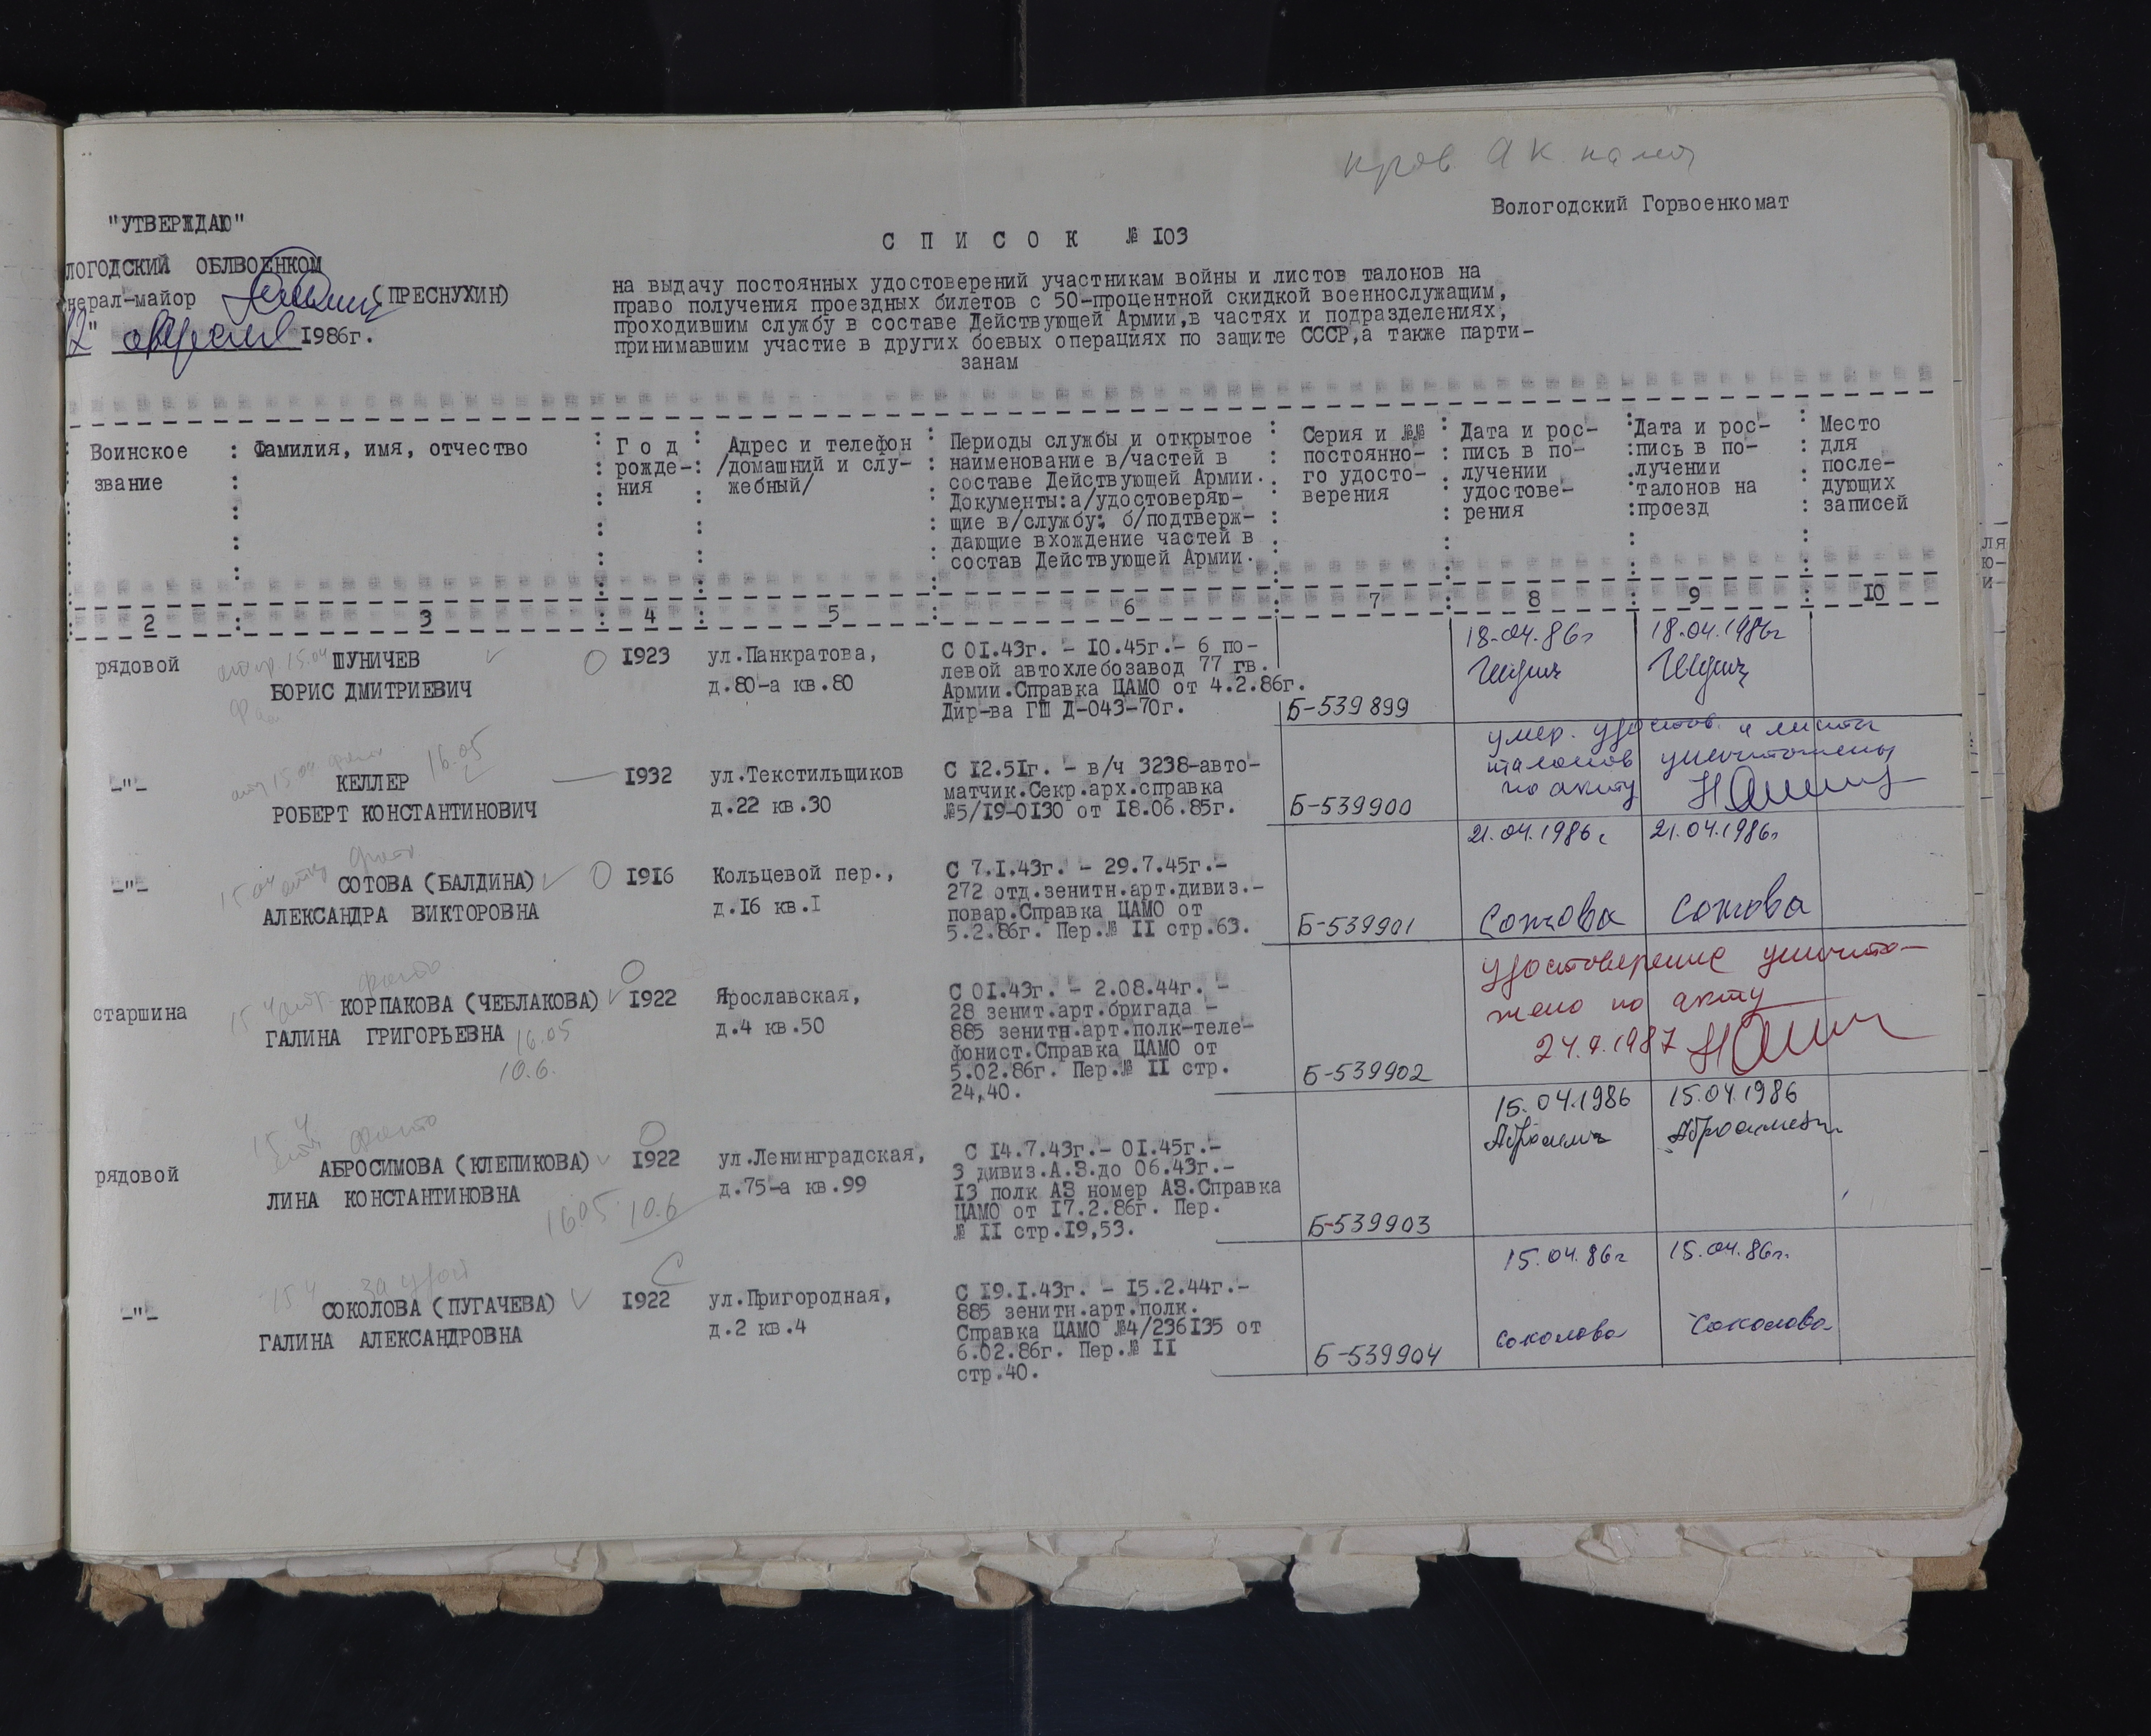 Вологодский Горвоенкомат
"УТВЕРЖДАЮ"
ЛОГОДСКИЙ ОБЛВОЕНКОМ
нерал-майор (ПРЕСНУХИН)
12" апреля 1986г.
С П И С О К № 103
на выдачу постоянных удостоверений участникам войны и листов талонов на
право получения проездных билетов с 50-процентной скидкой военнослужащим,
проходившим службу в составе Действующей Армии,в частях и подразделениях,
принимавшим участие в других боевых операциях по защите СССР,а также парти-
занам
Воинское
звание
Фамилия, имя, отчество
Г о д
рожде-
ния
Адрес и телефон
/домашний и слу-
жебный/
Периоды службы и открытое
наименование в/частей в
составе Действующей Армии.
Документы:а/удостоверяю-
щие в/службу; б/подтверж-
дающие вхождение частей в
состав Действующей Армии.
Серия и №№
постоянно-
го удосто-
верения
Дата и рос-
пись в по-
лучении
удостове-
рения
Дата и рос-
пись в по-
лучении
талонов на
проезд
Место
для
после-
дующих
записей
2 3 4 5 6 7 8 9 10
рядовой
ШУНИЧЕВ
БОРИС ДМИТРИЕВИЧ
1923
ул.Панкратова,
д.80-а кв.80
С 01.43г. - 10.45г.- 6 по-
левой автохлебозавод 77 гв.
Армии.Справка ЦАМО от 4.2.86г.
Дир-ва ГШ Д-043-70г.
Б-539899
18.04.86г
18.04.1986г
-"-
КЕЛЛЕР
16.05
РОБЕРТ КОНСТАНТИНОВИЧ
1932
ул.Текстильщиков
д.22 кв.30
С 12.51г. - в/ч 3238-авто-
матчик.Секр.арх.справка
№5/19-0130 от 18.06.85г.
Б-539900
умер. удостов. и листы
талонов уничтожены
по акту
-"-
СОТОВА (БАЛДИНА)
АЛЕКСАНДРА ВИКТОРОВНА
1916
Кольцевой пер.,
д.16 кв.1
С 7.1.43г. - 29.7.45г.-
272 отд.зенитн.арт.дивиз.-
повар.Справка ЦАМО от
5.2.86г. Пер.№ II стр.63.
Б-539901
21.04.1986г
Сотова
21.04.1986г
Сотова
старшина
КОРПАКОВА (ЧЕБЛАКОВА)
ГАЛИНА ГРИГОРЬЕВНА
16.05
10.6.
1922
Ярославская,
д.4 кв.50
С 01.43г. - 2.08.44г. -
28 зенит.арт.бригада -
885 зенитн.арт.полк-теле-
фонист.Справка ЦАМО от
5.02.86г. Пер.№ II стр.
24,40.
Б-539902
удостоверение уничто-
жено по акту
24.9.1987
рядовой
АБРОСИМОВА (КЛЕПИКОВА)
ЛИНА КОНСТАНТИНОВНА
16.05 10.6
1922
ул.Ленинградская,
д.75-а кв.99
С 14.7.43г.- 01.45г.-
3 дивиз.А.З.до 06.43г.-
13 полк АЗ номер АЗ.Справка
ЦАМО от 17.2.86г. Пер.
№ II стр.19,53.
Б-539903
15.04.1986
15.04.1986
-"-
СОКОЛОВА (ПУГАЧЕВА)
ГАЛИНА АЛЕКСАНДРОВНА
1922
ул.Пригородная,
д.2 кв.4
С 19.1.43г. - 15.2.44г.-
885 зенитн.арт.полк.
Справка ЦАМО №4/236135 от
6.02.86г. Пер.№ II
стр.40.
Б-539904
15.04.86г
Соколова
15.04.86г.
Соколова